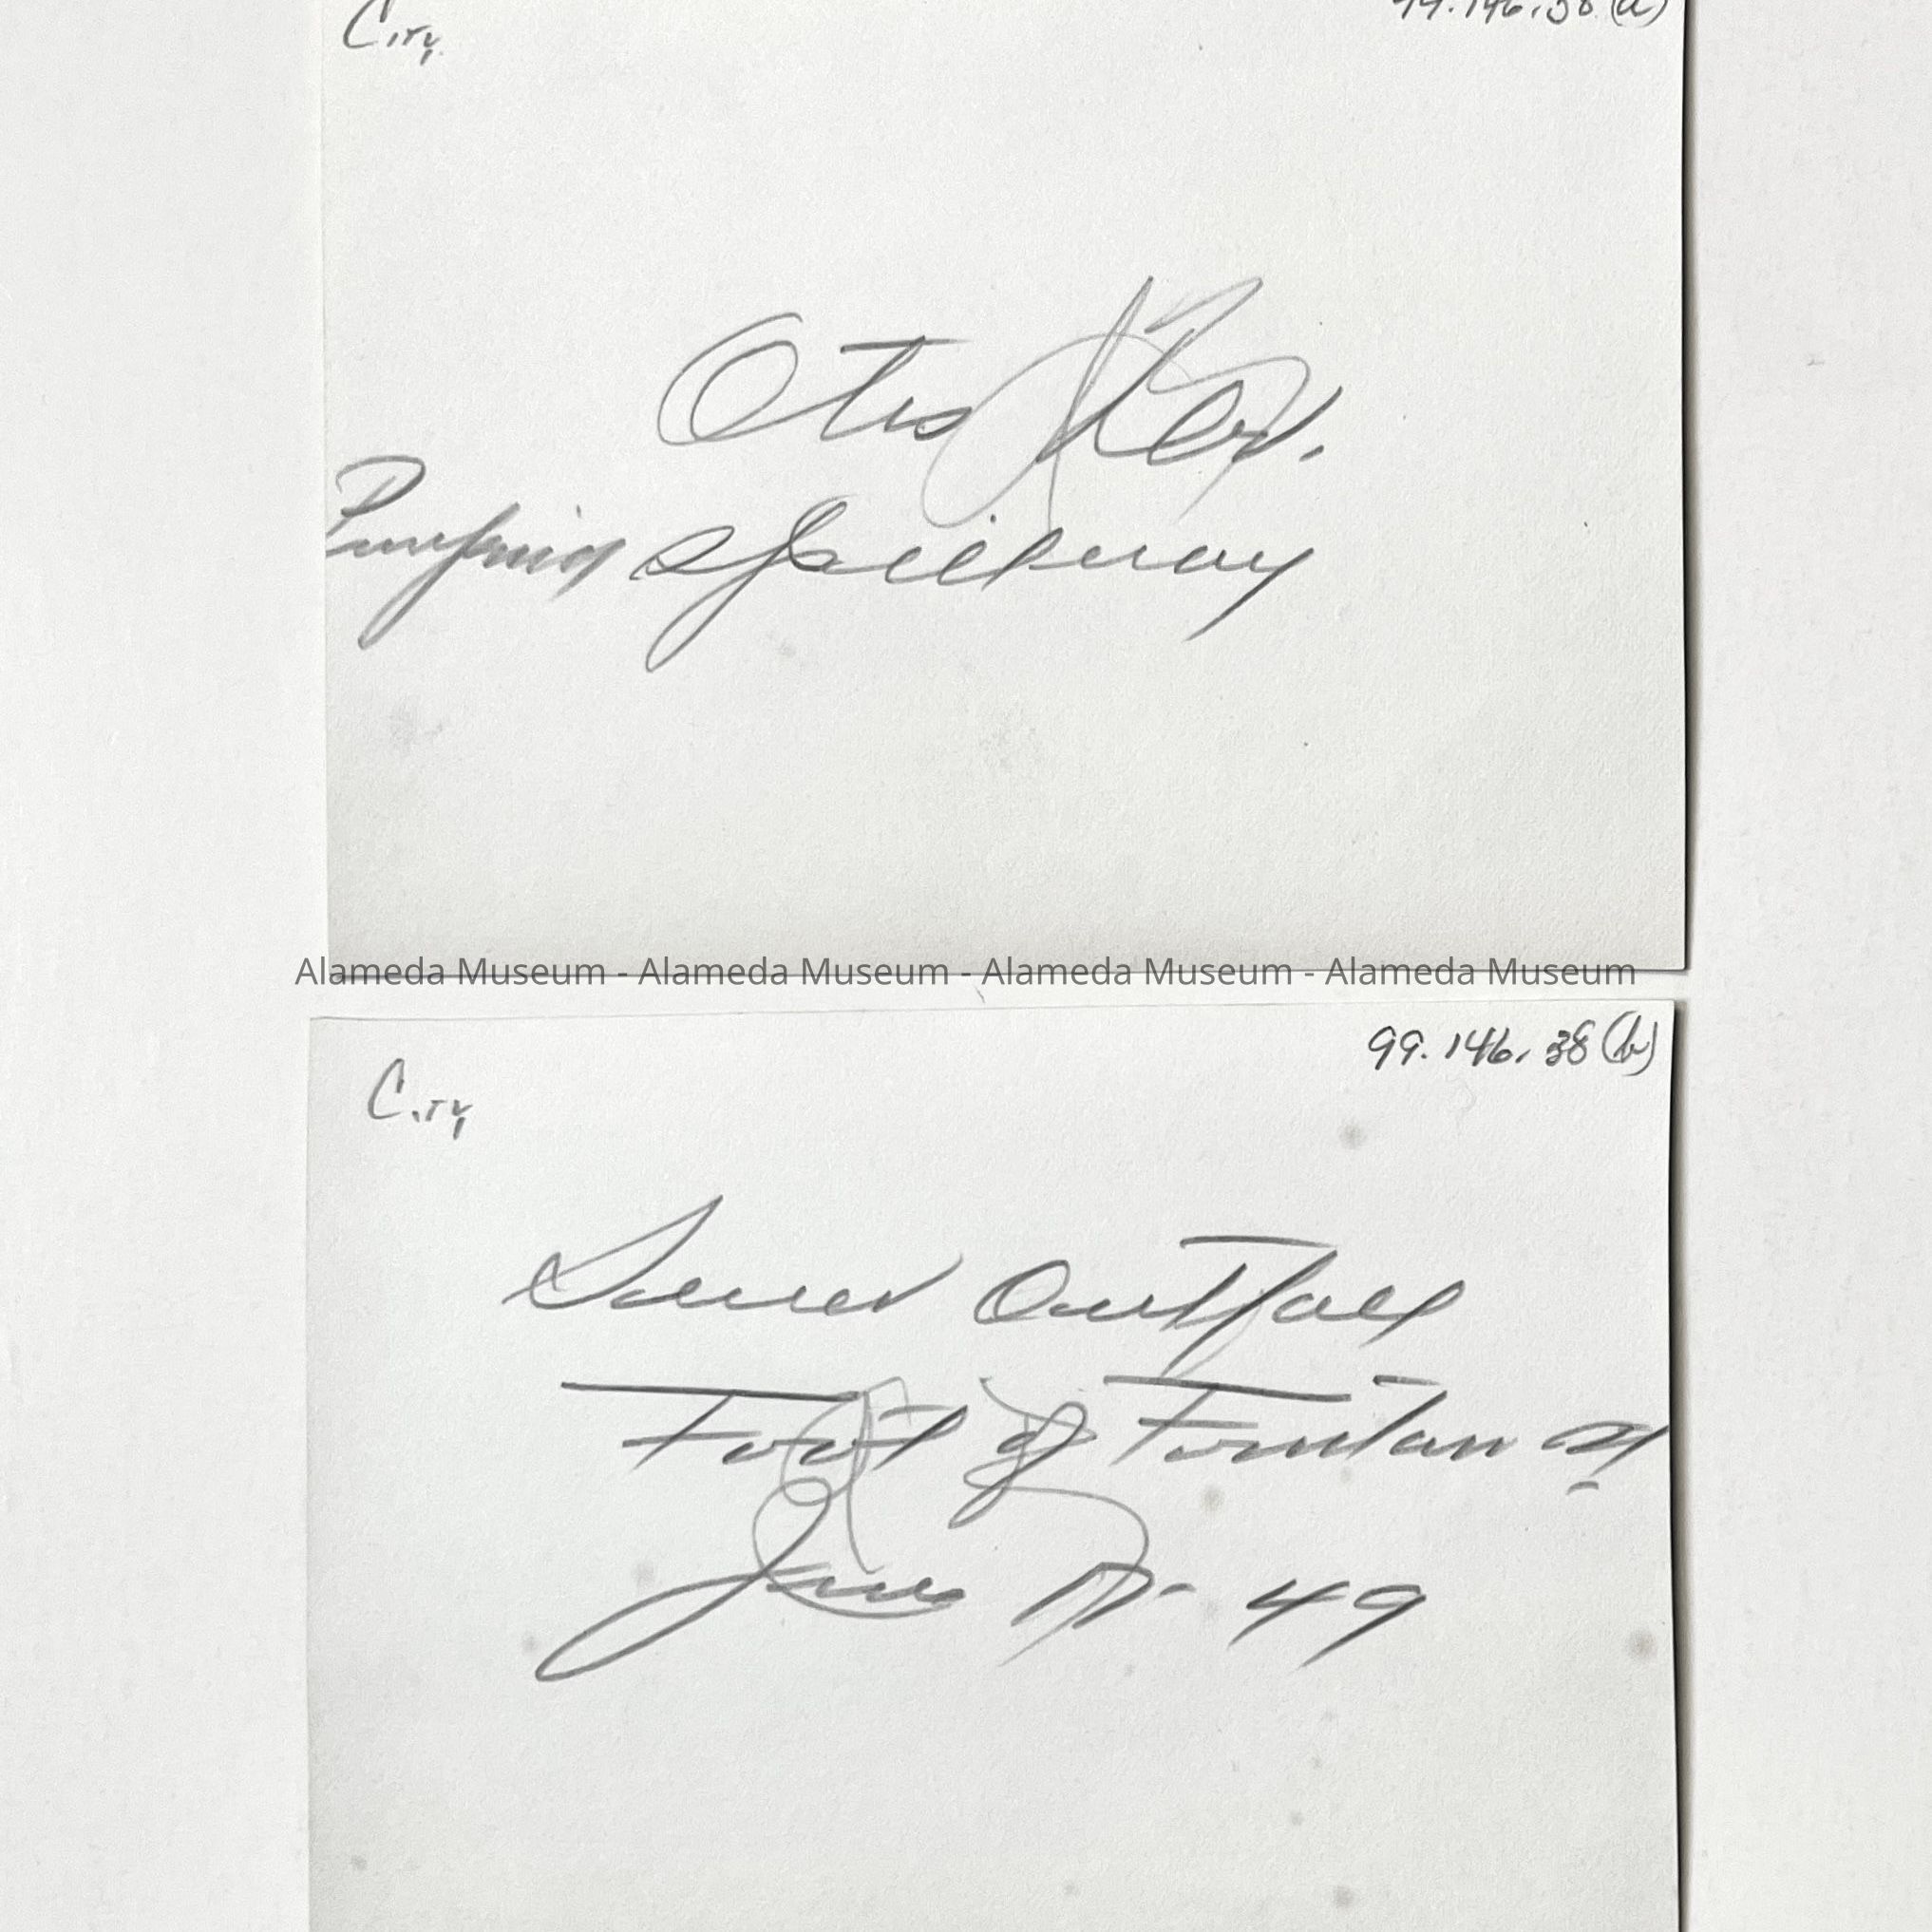 City
99.146.38 (a)
Otis
Pumping spillway
Alameda Museum - Alameda Museum - Alameda Museum - Alameda Museum
99.146.38 (b)
City
Sewer Outfall
Foot of Fountain St
June 17-49